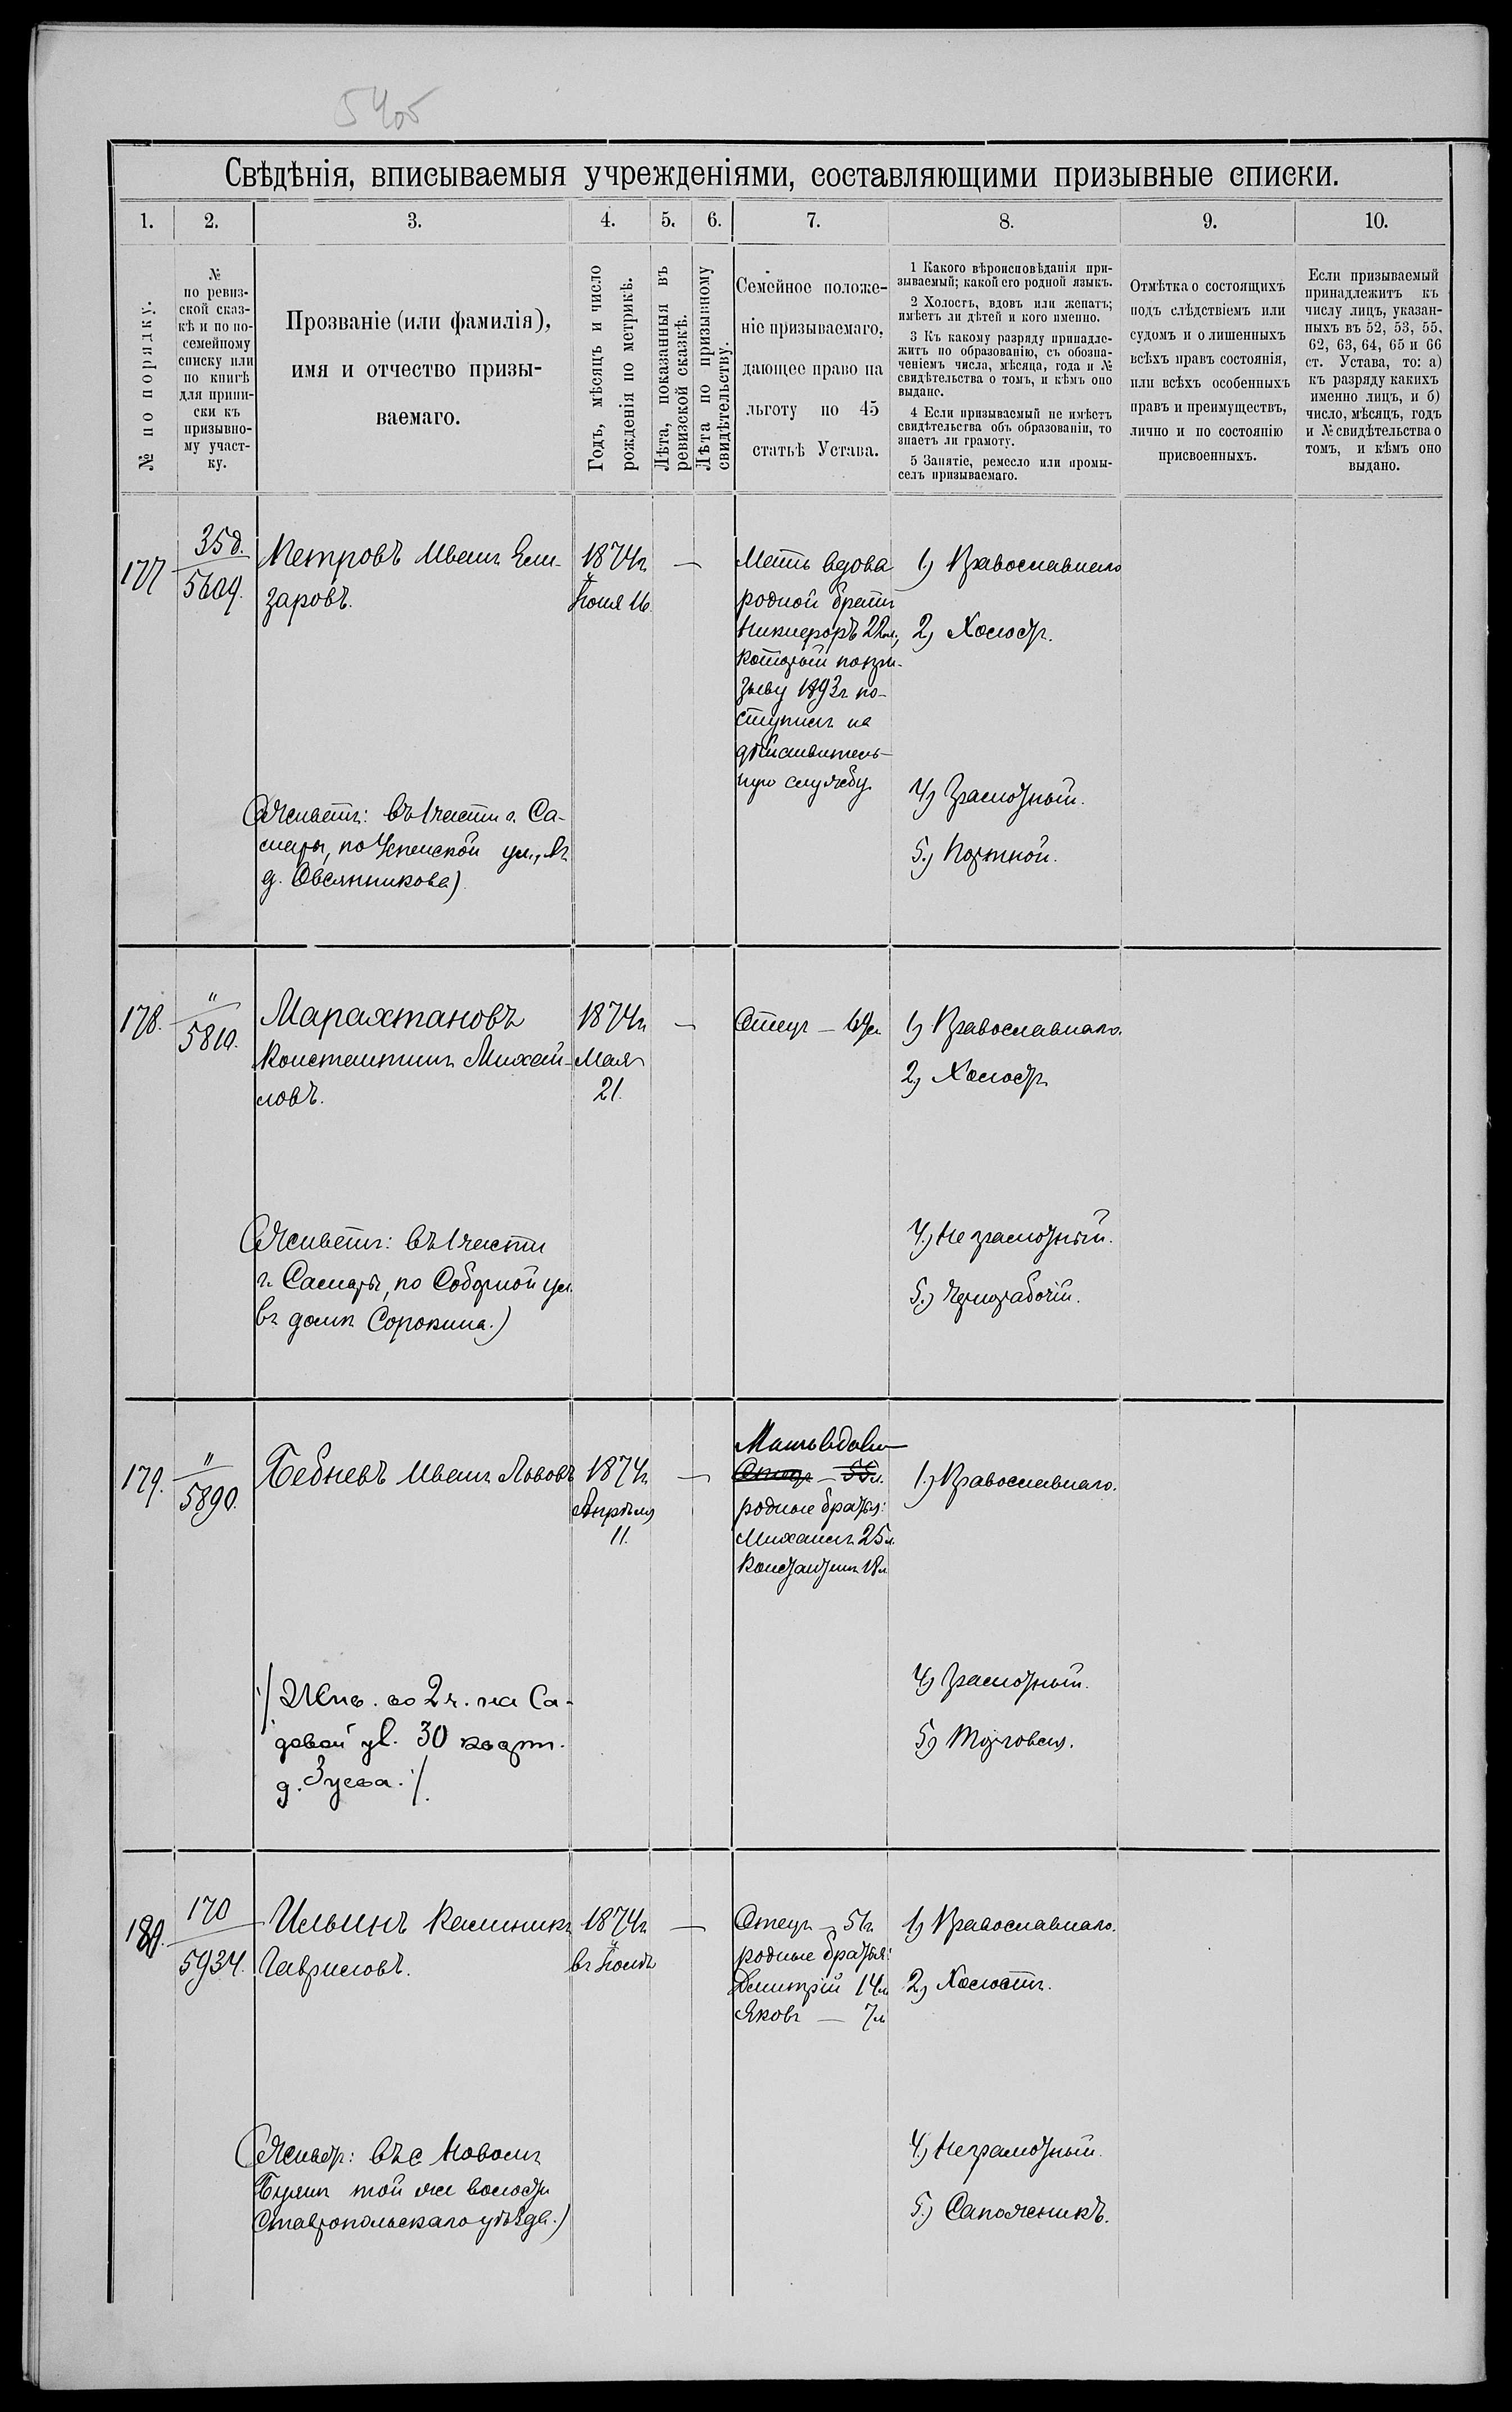 Свѣдѣнія, вписываемыя учрежденіями, составляющими призывные списки.
1. 2. 3. 4. 5. 6. 7. 8. 9. 10.
№ по порядку.
№
по ревиз-
ской сказ-
кѣ и по по-
семейному
списку или
по книгѣ
для припи-
ски къ
призывно-
му участ-
ку.
Прозваніе (или фамилія),
имя и отчество призы-
ваемаго.
Годъ, мѣсяцъ и число
рожденія по метрикѣ.
Лѣта, показанныя въ
ревизской сказкѣ.
Лѣта по призывному
свидѣтельству.
Семейное положе-
ніе призываемаго,
дающее право на
льготу по 45
статьѣ Устава.
1 Какого вѣроисповѣданія при-
зываемый; какой его родной языкъ.
2 Холостъ, вдовъ или женатъ;
имѣетъ ли дѣтей и кого именно.
3 Къ какому разряду принадле-
житъ по образованію, съ обозна-
ченіемъ числа, мѣсяца, года и №
свидѣтельства о томъ, и кѣмъ оно
выдано.
4 Если призываемый не имѣетъ
свидѣтельства объ образованіи, то
знаетъ ли грамоту.
5 Занятіе, ремесло или промы-
селъ призываемаго.
Отмѣтка о состоящихъ
подъ слѣдствіемъ или
судомъ и о лишенныхъ
всѣхъ правъ состоянія,
или всѣхъ особенныхъ
правъ и преимуществъ,
лично и по состоянію
присвоенныхъ.
Если призываемый
принадлежитъ къ
числу лицъ, указан-
ныхъ въ 52, 53, 55,
62, 63, 64, 65 и 66
ст. Устава, то: а)
къ разряду какихъ
именно лицъ, и б)
число, мѣсяцъ, годъ
и № свидѣтельства о
томъ, и кѣмъ оно
выдано.
177
5609.
Петровъ Иванъ Ели-
заровъ.
1874г.
16
—
Мать вдова
родной братъ
Никифоръ 22л.,
который по при-
зыву 1893г. по-
ступилъ на
дѣйствитель-
ную службу.
1) Православнаго
2) Холостъ.
4) Грамотный.
5.) Портной.
(Живетъ: въ 1 части г. Са-
мары, по Успенской ул., въ
д. Овсянникова)
178.
"
5810.
Марахтановъ
Константинъ Михай-
ловъ.
1874г.
Мая
21.
—
Отецъ —
1) Православнаго.
2) Холостъ
4.) Неграмотный.
5.) Чернорабочій.
(Живетъ: въ 1 части
г. Самары, по Соборной ул.
въ домѣ Сорокина.)
179.
"
5890.
Бебневъ Иванъ Львовъ
1874г.
Апрѣля
11.
—
Мать вдова
Отецъ — 55л.
родные братья:
Михаилъ 25л.
Константинъ 18л.
1.) Православнаго.
4) Грамотный.
5) Торговля.
/Жив. во 2 ч. на Са-
довой ул. 30 кварт.
д. Зуева./.
180.
170
5934.
Ильинъ Калинникъ
Гавриловъ.
1874г.
—
Отецъ — 51г.
родные братья:
Дмитрій 14л.
Яковъ — 7л.
1) Православнаго.
2) Холостъ.
4.) Неграмотный.
5.) Сапожникъ.
(Живетъ: въ с. Новомъ
той же волости
Ставропольскаго уѣзда.)